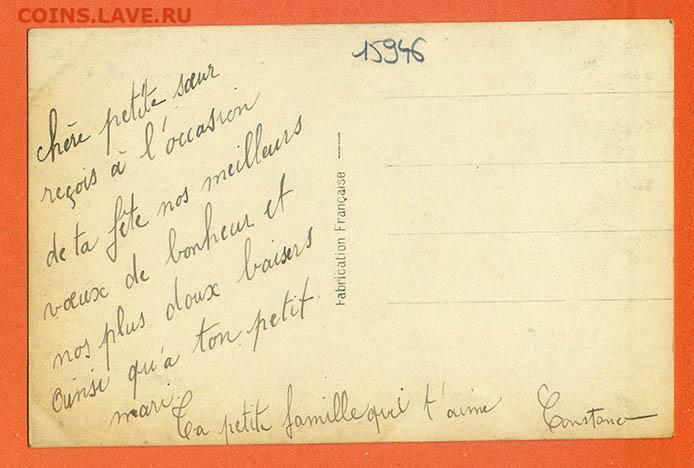 COINS.LAVE.RU
15946
chère petite sœur
reçois à l'occasion
de ta fête nos meilleurs
vœux de bonheur et
nos plus doux baisers
ainsi qu'a ton petit
mari.
Ta petite famille qui t'aime
Constance
Fabrication Française